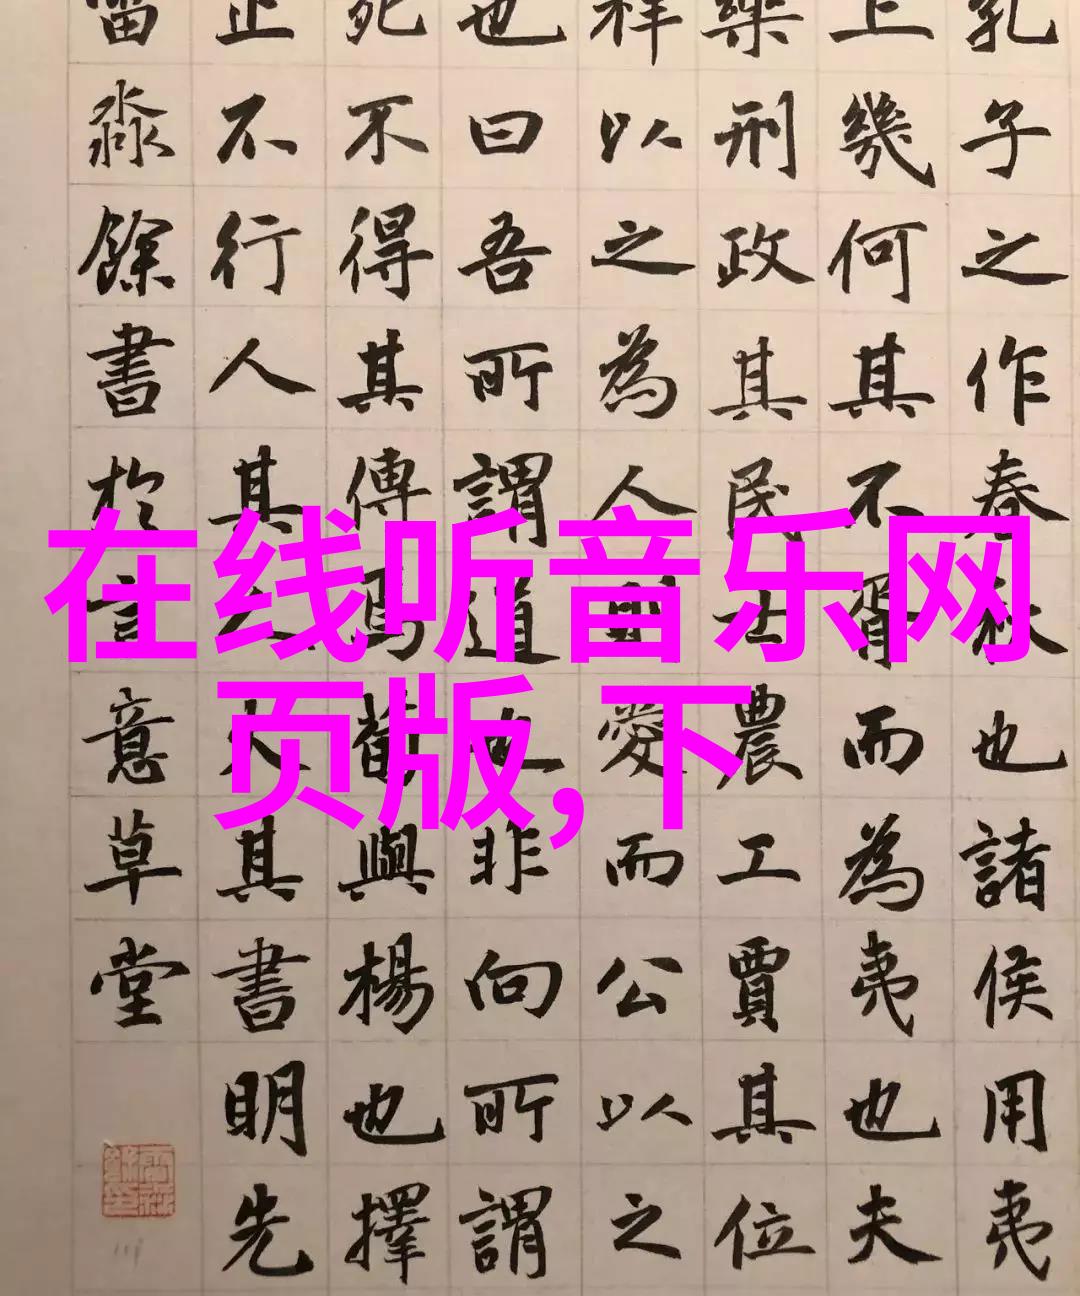 在线听音乐网
页版,下
孔子之作春秋也諸侯用夷
上幾何其不胥而為夷也夫
樂刑政其民士農工賈其位
祥以之為人則愛而公以之
也曰吾所謂道也非向所謂
死不得其傳焉荀與楊也擇
止不行人其人火其書明先
淼餘書於言意草堂